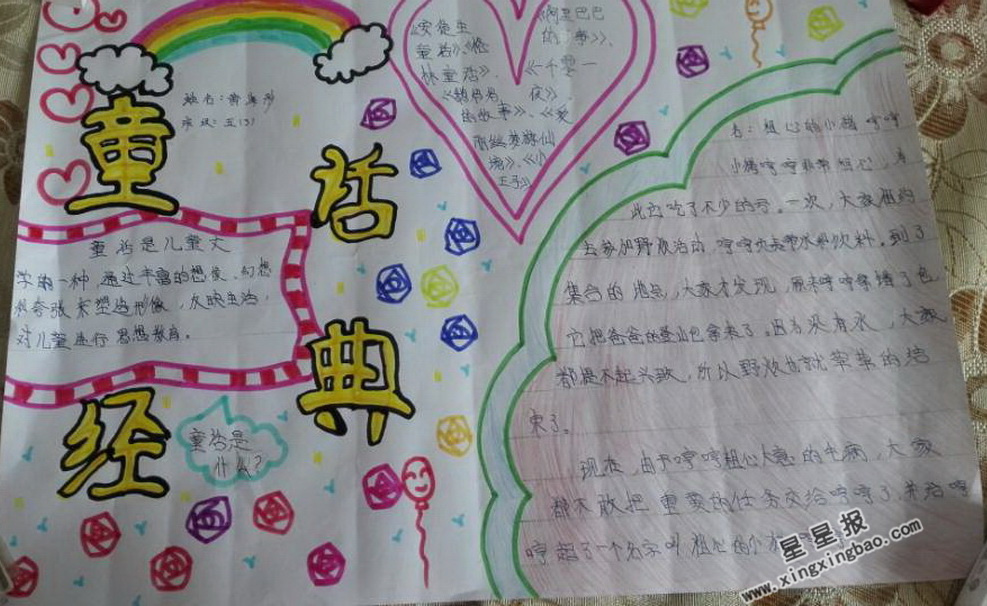 童话
经典
姓名：
班级：五(3)
《安徒生
童话》、《格
林童话》、
的故事》、《爱
丽丝梦游仙
境》、《小
王子》
《阿里巴巴
的故事》、
《一千零一
夜》、
童话是儿童文
学的一种，通过丰富的想象、幻想
和夸张来塑造形像，反映生活，
对儿童进行思想教育。
童话是
什么？
名：粗心的小猪哼哼
小猪哼哼非常粗心，为
此它吃了不少的苦。一次，大家相约
去参加野炊活动，哼哼负责带水和饮料。到了
集合的地点，大家才发现，原来哼哼背错了包，
它把爸爸的登山包拿来了。因为没有水，大家
都提不起头致，所以野炊也就草草的结
束了。
现在，由于哼哼粗心大意的毛病，大家
都不敢把重要的任务交给哼哼了，并给哼
哼起了一个名字叫粗心的小猪
星星报
www.xingxingbao.com